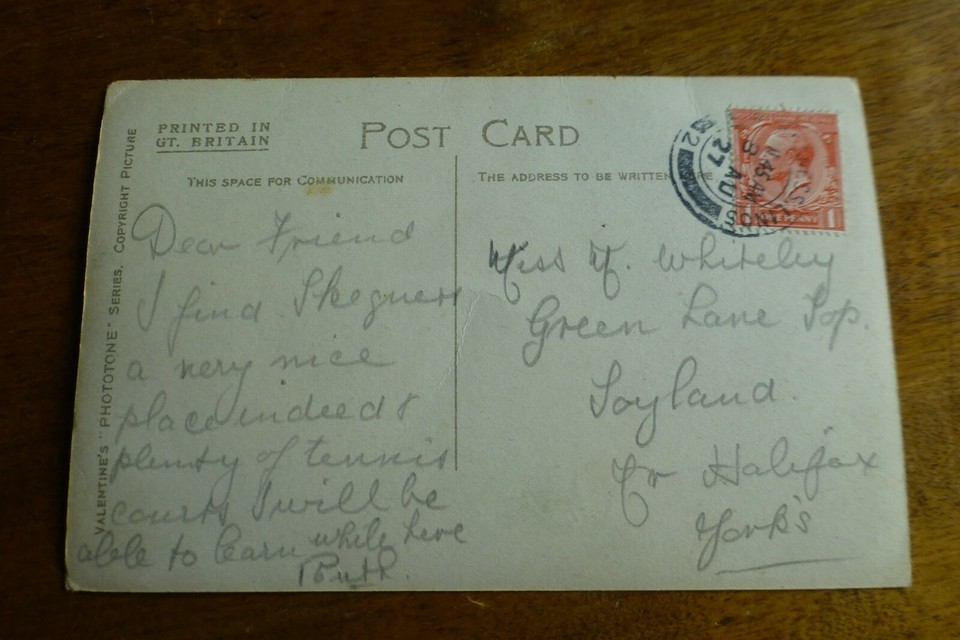 PRINTED IN
GT. BRITAIN
POST CARD
THIS SPACE FOR COMMUNICATION
THE ADDRESS TO BE WRITTEN HERE
VALENTINE'S "PHOTOTONE" SERIES. COPYRIGHT PICTURE
Dear Friend
I find Skegness
a very nice
place indeed &
plenty of tennis
courts I will be
able to learn while here
Ruth.
Miss M. Whiteley
Green Lane Top.
Soyland.
Nr Halifax
York's
8 AU
27
PENNY
1